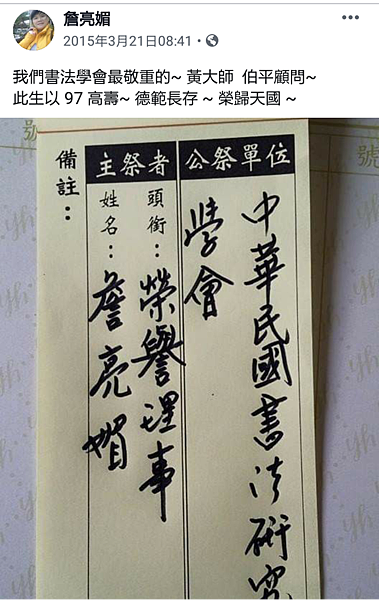 詹亮媚
2015年3月21日08:41
我們書法學會最敬重的~ 黃大師  伯平顧問~
此生以 97 高壽~ 德範長存 ~ 榮歸天國 ~
號
號
公祭單位
中華民國書法研究
學會
主祭者
頭銜：榮譽理事
姓名：詹亮媚
備註：